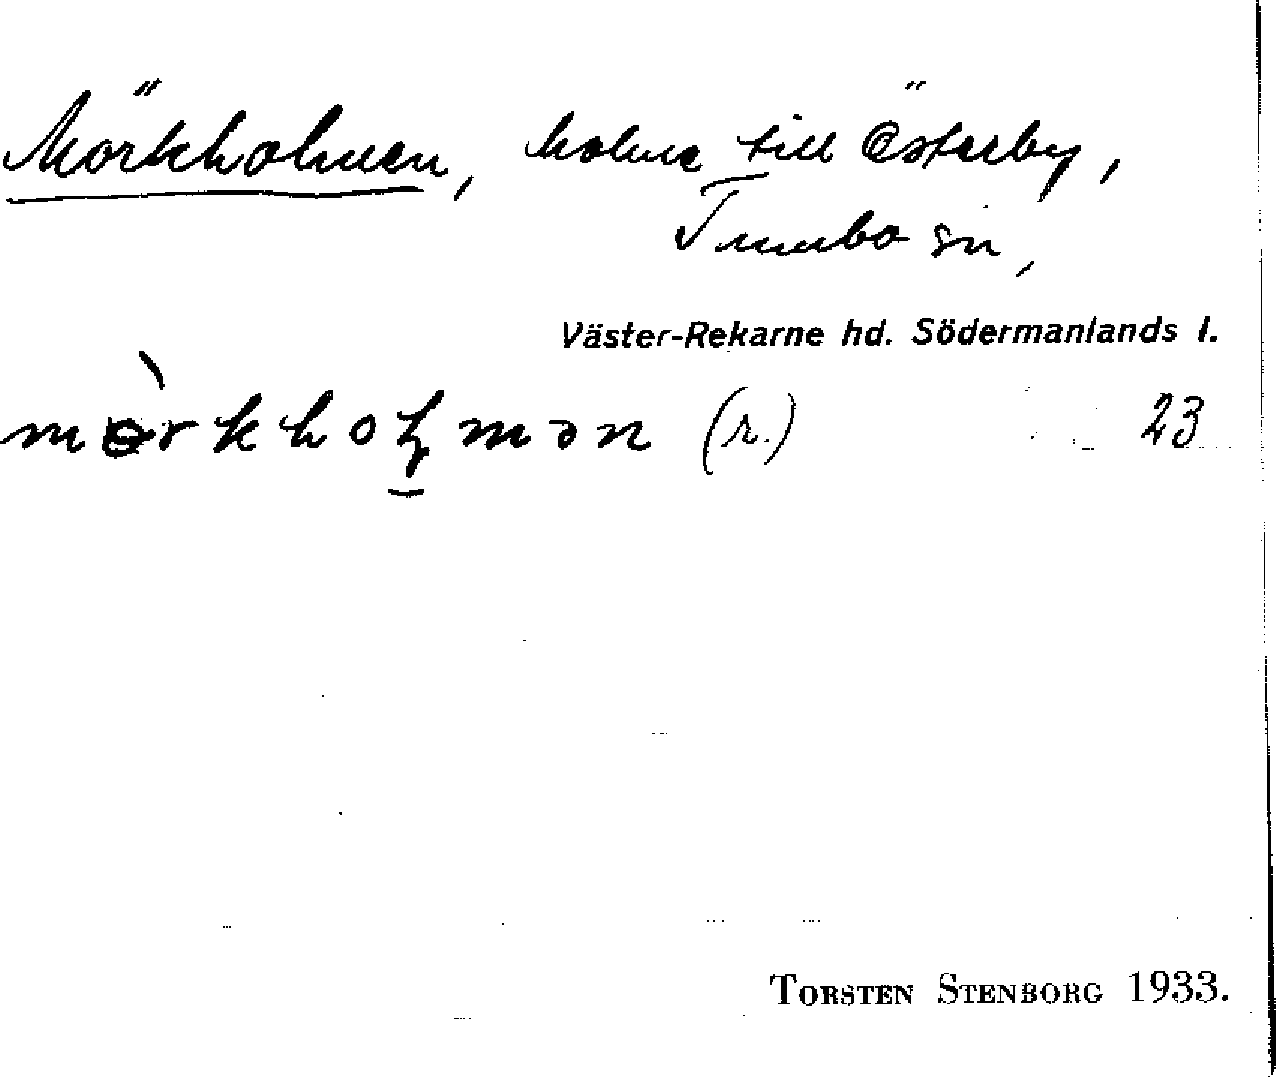 Mörkholmen, holme till Österby,
Tumbo sn,
Väster-Rekarne hd. Södermanlands l.
mɵ̀rkhoɭmən (r.) 23
TORSTEN STENBORG 1933.